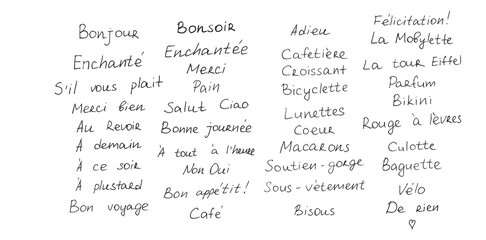 Bonjour
Enchanté
S'il vous plait
Merci bien
Au Revoir
À demain
À ce soir
À plustard
Bon voyage
Bonsoir
Enchantée
Merci
Pain
Salut Ciao
Bonne journée
À tout à l'heure
Non Oui
Bon appétit!
Café
Adieu
Cafetière
Croissant
Bicyclette
Lunettes
Coeur
Macarons
Soutien-gorge
Sous-vètement
Bisous
Félicitation!
La Mobylette
La tour Eiffel
Parfum
Bikini
Rouge à lèvres
Culotte
Baguette
Vélo
De rien